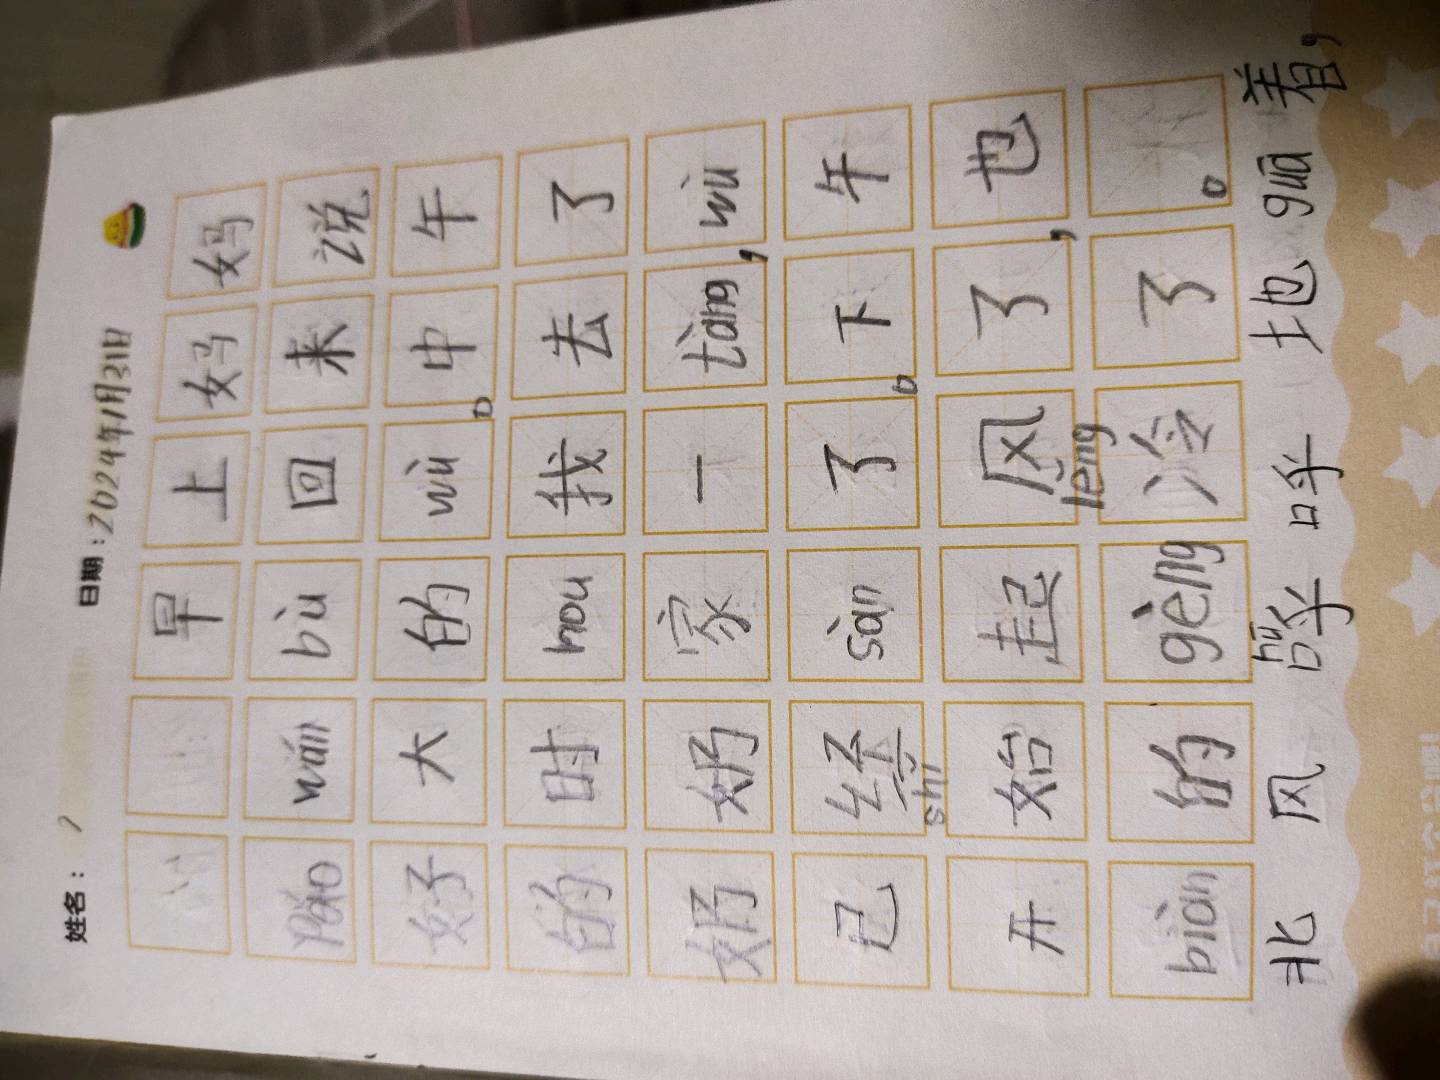 姓名： 日期：2024年1月31日
早上妈妈
pǎo wán bù 回来说
好大的 wù。中午
的时 hou 我去了
奶奶家一 tàng，wù
已经 sàn 了。下午
shǐ
开始起风了，也
lěng
biàn 的 gèng 冷了。
hū
北风呼呼地 guā 着，